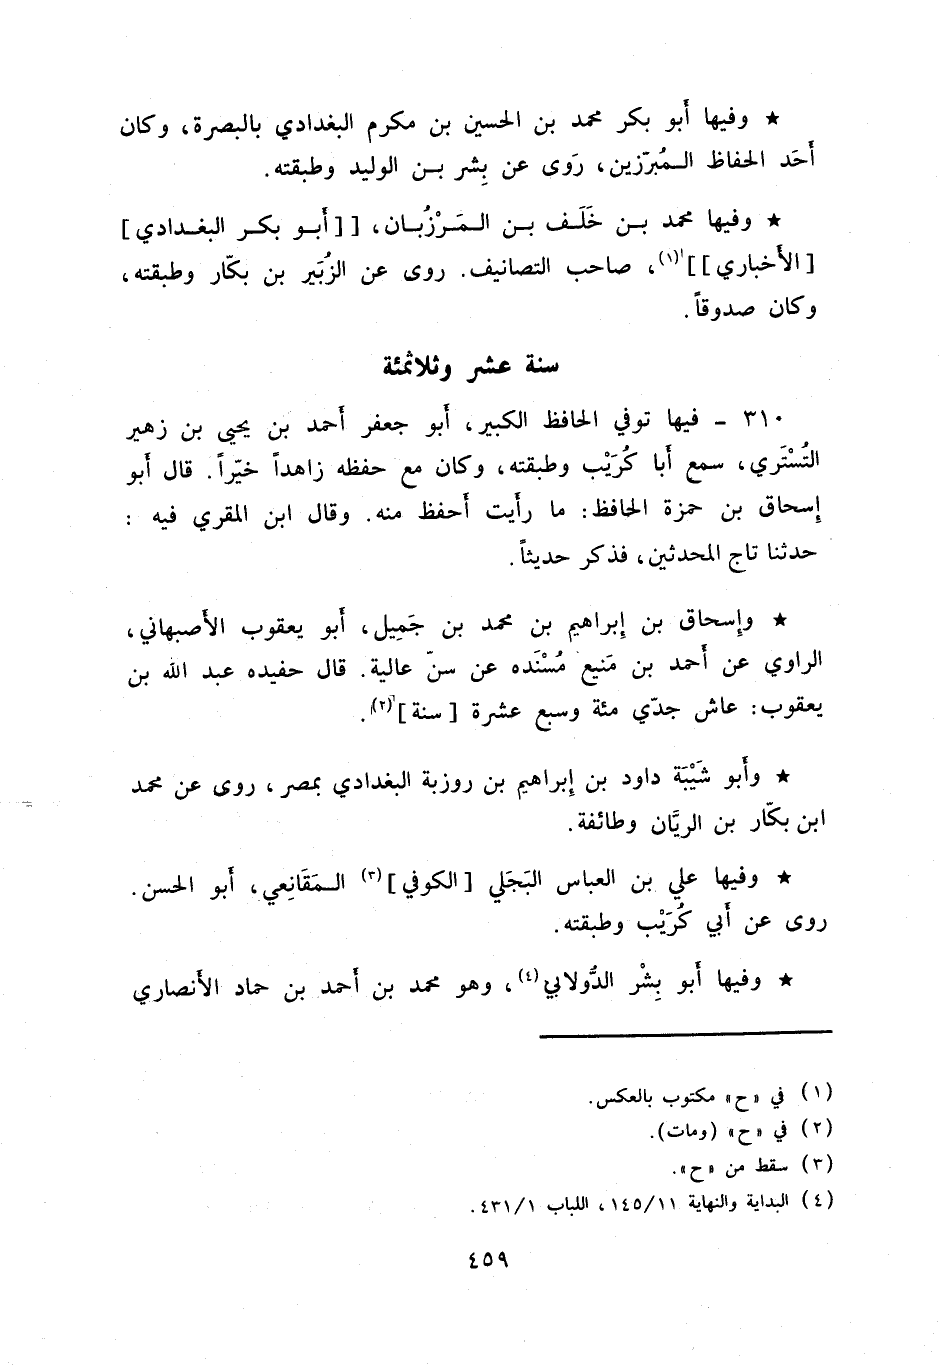 ★ وفيها أَبو بكر محمد بن الحسين بن مكرم البغدادي بالبصرة، وكان
أَحَد الحفاظ المُبرّزين، رَوى عن بِشر بن الوليد وطبقته.
★ وفيها محمد بن خَلَف بن المَرْزُبان، [[أَبو بكر البغدادي]
[الأَخباري]](١)، صاحب التصانيف. روى عن الزُبَير بن بكّار وطبقته،
وكان صدوقاً.
سنة عشر وثلاثمئة
٣١٠ - فيها توفي الحافظ الكبير، أَبو جعفر أَحمد بن يحيى بن زهير
التُسْتَري، سمع أَبا كُرَيْب وطبقته، وكان مع حفظه زاهداً خيّراً. قال أَبو
إِسحاق بن حمزة الحافظ: ما رأَيت أَحفظ منه. وقال ابن المقري فيه :
حدثنا تاج المحدثين، فذكر حديثاً.
★ وإِسحاق بن إِبراهيم بن محمد بن جَمِيل، أَبو يعقوب الأَصبهاني،
الراوي عن أَحمد بن مَنيع مُسْنَده عن سنّ عالية. قال حفيده عبد الله بن
يعقوب: عاش جدّي مئة وسبع عشرة [سنة](٢).
★ وأَبو شَيْبَة داود بن إِبراهيم بن روزبة البغدادي بمصر، روى عن محمد
ابن بكّار بن الريَّان وطائفة.
★ وفيها علي بن العباس البَجَلي [الكوفي](٣) المَقَانِعي، أَبو الحسن.
روى عن أَبي كُرَيْب وطبقته.
★ وفيها أَبو بِشْر الدُّولابي(٤)، وهو محمد بن أَحمد بن حماد الأَنصاري
(١) في «ح» مكتوب بالعكس.
(٢) في «ح» (ومات).
(٣) سقط من «ح».
(٤) البداية والنهاية ١٤٥/١١، اللباب ٤٣١/١.
٤٥٩